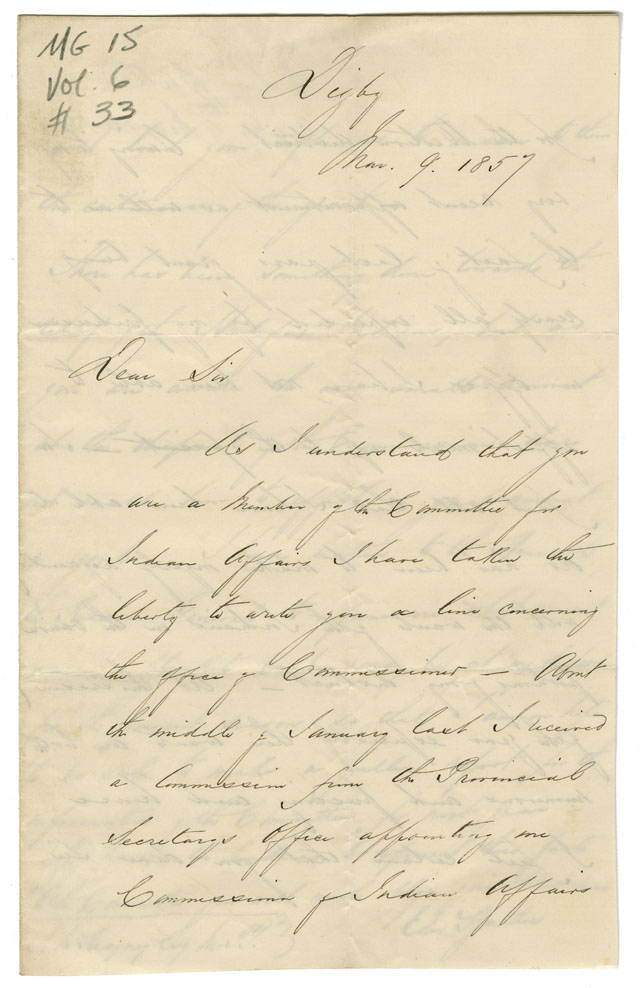 MG 15
Vol. 6
# 33
Digby
Mar. 9. 1857
Dear Sir
As I understand that you
are a Member of the Committee for
Indian Affairs I have taken the
liberty to write you a line concerning
the office of Commissioner — About
the middle of January last I received
a Commission from the Provincial
Secretarys Office appointing me
Commissioner of Indian Affairs